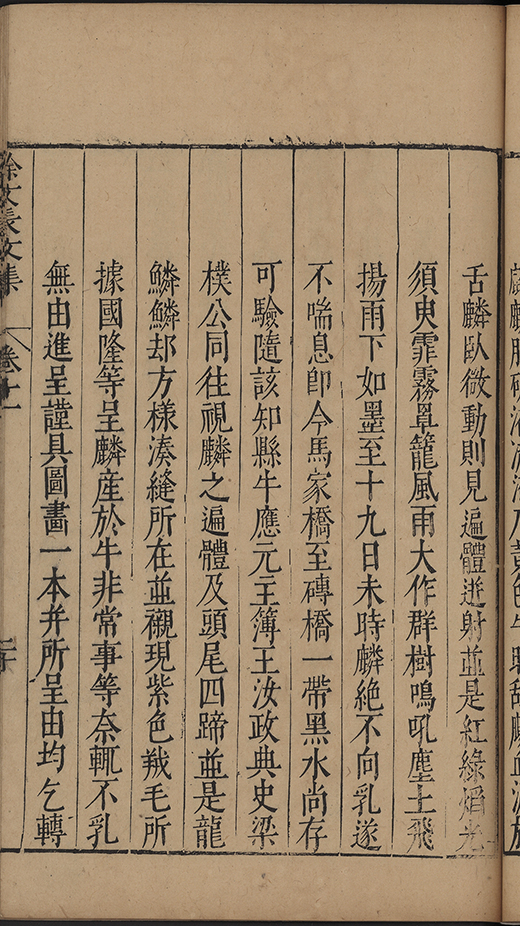 舌麟臥微動則見遍體迸射並是紅綠熖光
須臾霏霧罩籠風雨大作群樹鳴吼塵土飛
揚雨下如墨至十九日未時麟絕不向乳遂
不喘息卽今馬家橋至磚橋一帶黑水尚存
可驗隨該知縣牛應元主簿王汝政典史梁
樸公同往視麟之遍體及頭尾四蹄並是龍
鱗鱗却方樣湊縫所在並襯現紫色羢毛所
據國隆等呈麟產於牛非常事等奈輒不乳
無由進呈謹具圖畫一本并所呈由均乞轉
徐文長文集 卷十一